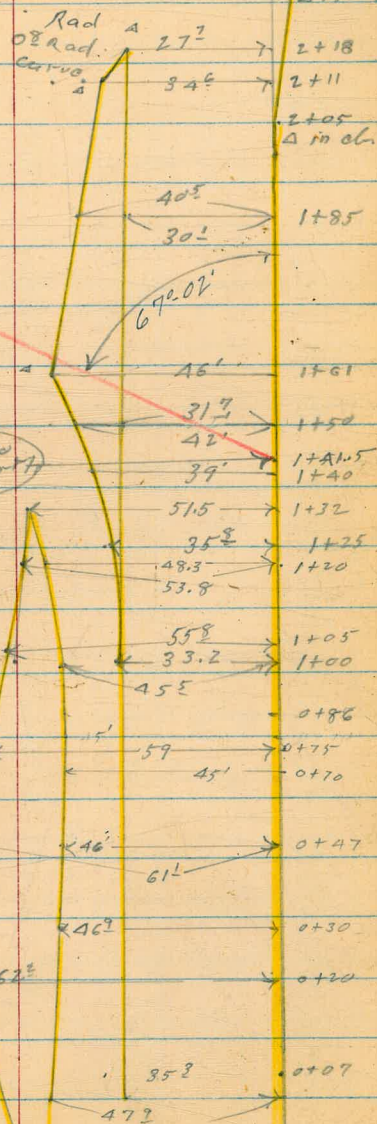 Rad
0⁸ Rad.
Curve
27⁷ 2+18
34⁶ 2+11
2+05
Δ in cb.
40⁵ 1+85
30¹
67°-02'
46' 1+61
31⁷ 1+50
42'
1+41.5
39' 1+40
51.5 1+32
35⁸ 1+25
48.3 1+20
53.8
55⁸ 1+05
33.2 1+00
45⁵
0+86
45'
59 0+75
45' 0+70
46' 0+47
61¹
46⁹ 0+30
0+20
35³ 0+07
47⁹